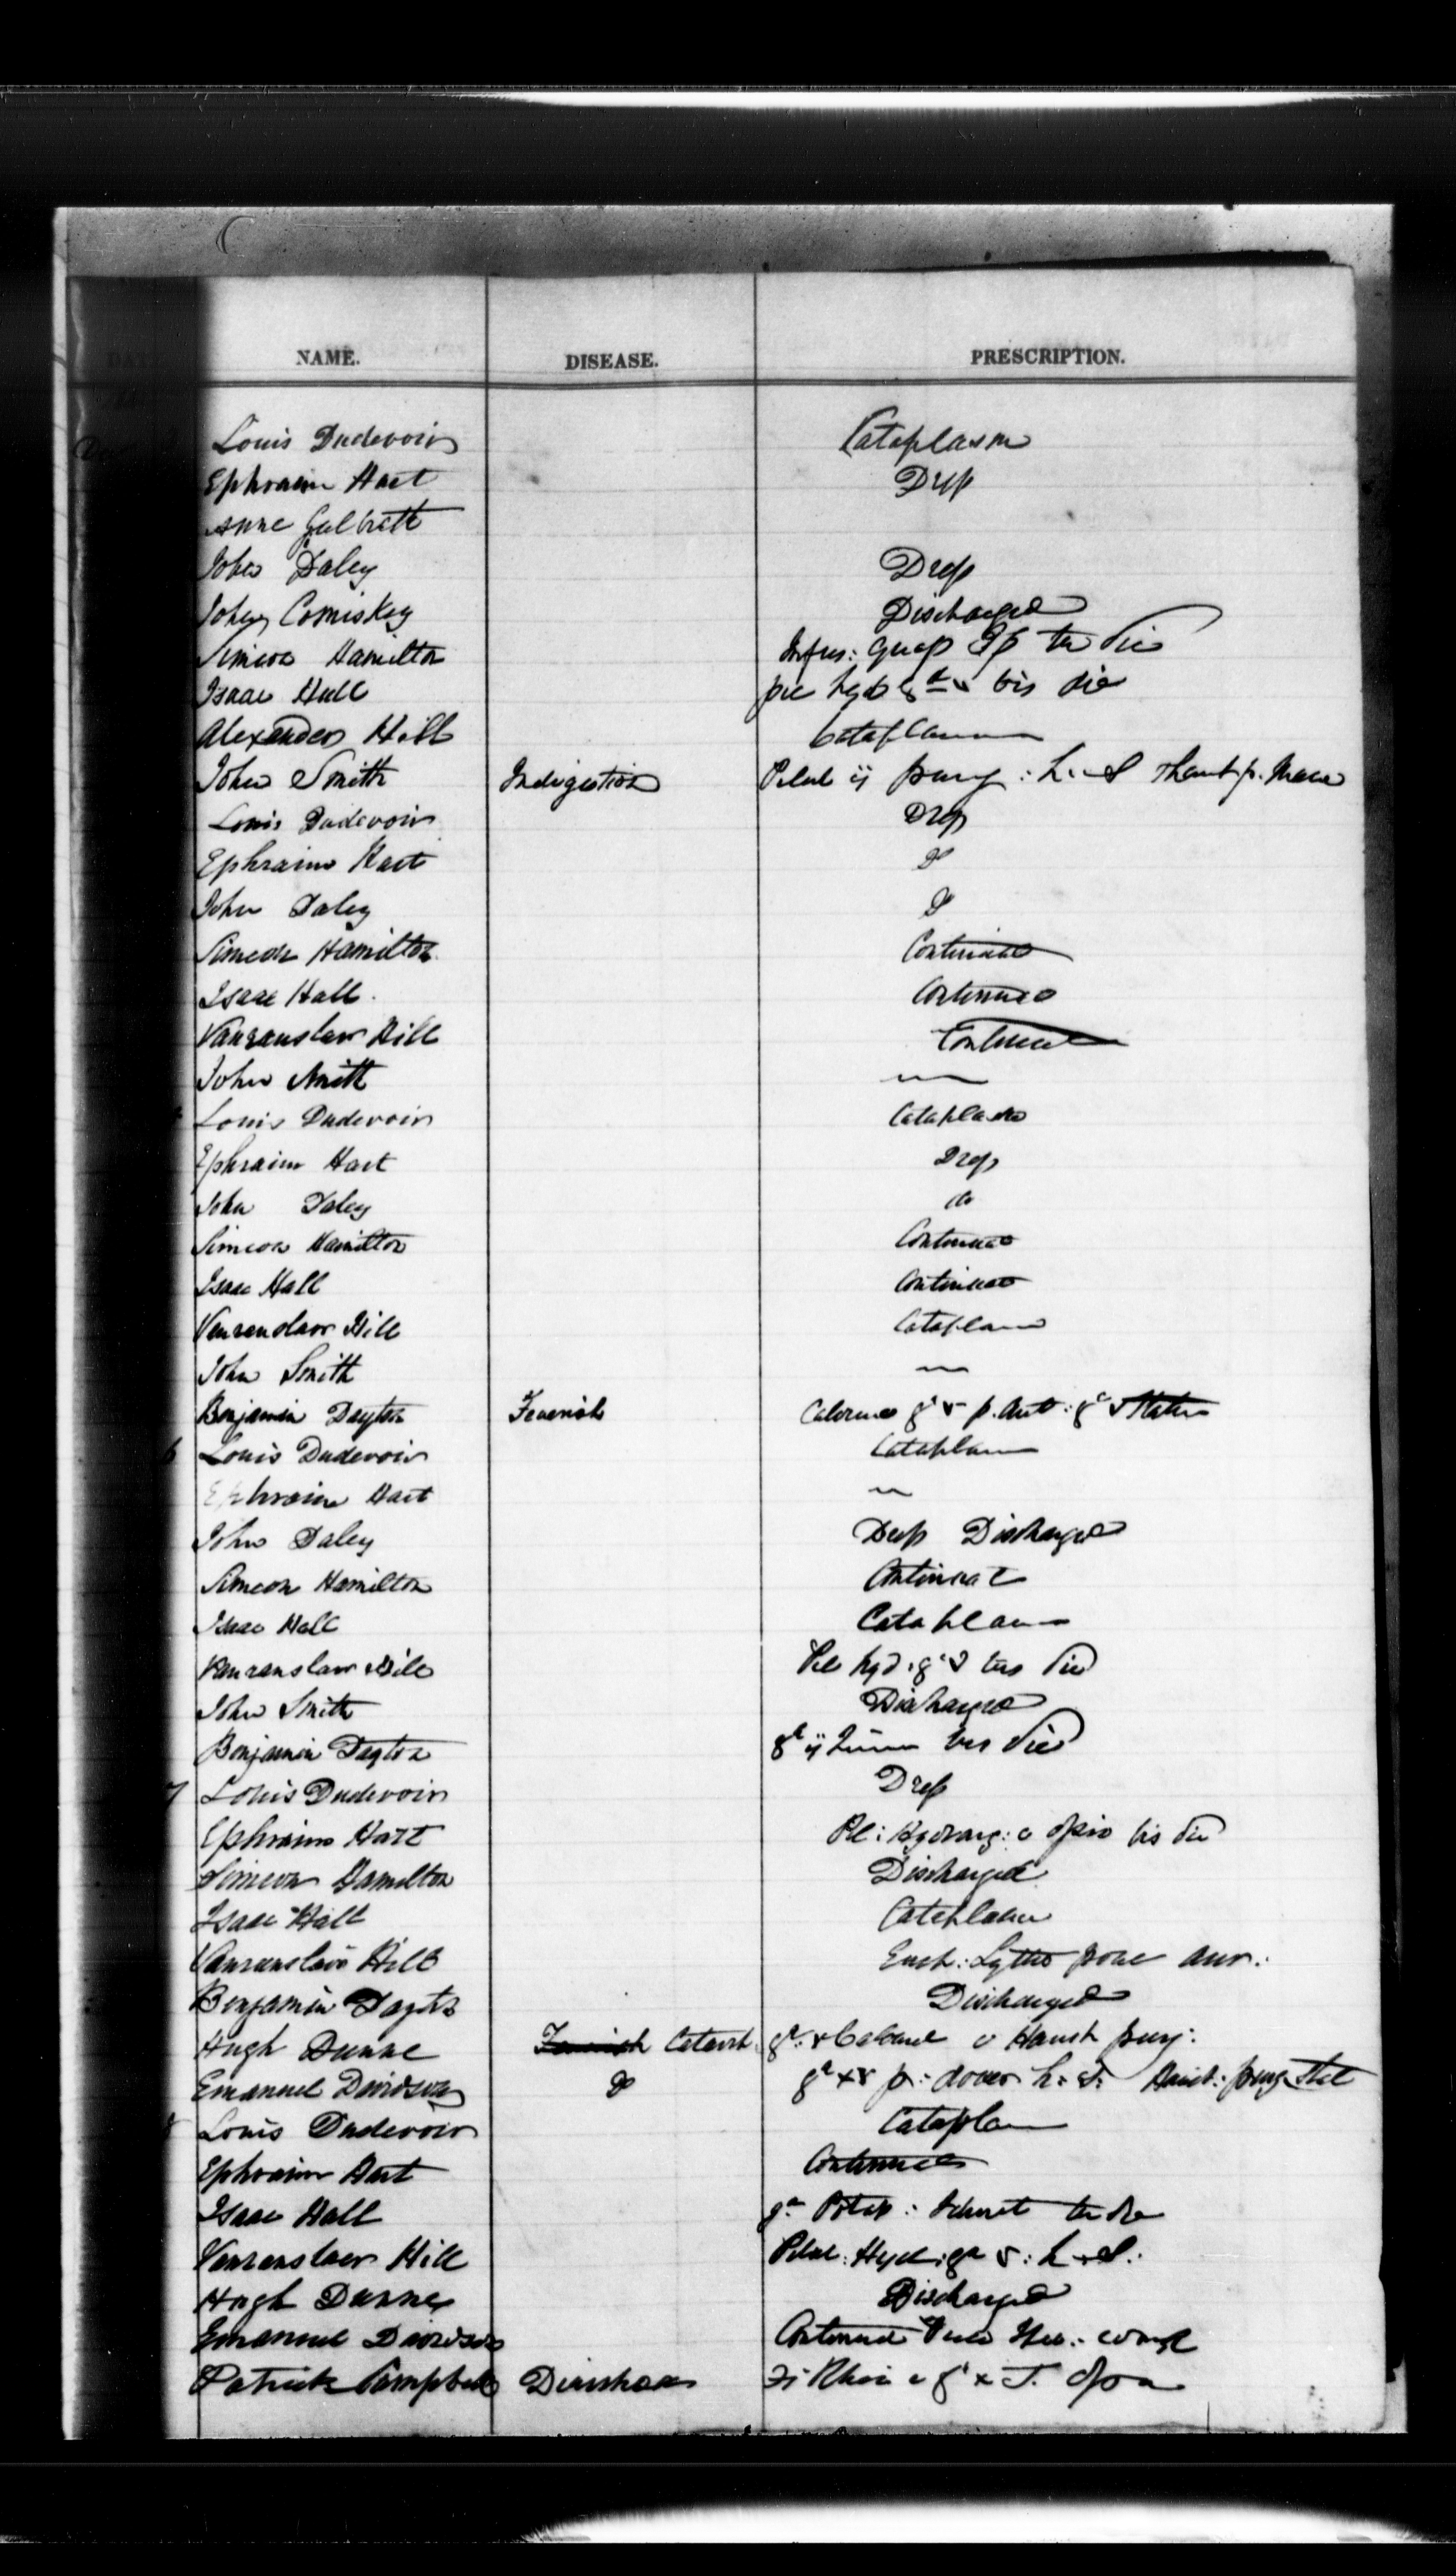 NAME. DISEASE. PRESCRIPTION.
Louis Dudevoir Cataplasm
Ephraim Hart Drep
Anne Galbrett
John Daley Drep
John Comiskey Discharged
Simeon Hamilton Infus: ter die
Isaac Hall pil hyd gr v bis die
Alexander Hill Cataplasm
John Smith Indigestion Pilul ij purg: h. S Haust p. Mane
Louis Dudevoir Drep
Ephraim Hart Do
John Daley Do
Simeon Hamilton Continued
Isaac Hall Continued
Vanranslaer Hill Continued
John Smith —
Louis Dudevoir Cataplasm
Ephraim Hart Drep
John Daley do
Simeon Hamilton Continued
Isaac Hall Continued
Vanranslaer Hill Cataplasm
John Smith —
Benjamin Dayton Feverish Calomel gr v p. Ant: gr v Statim
6 Louis Dudevoir Cataplasm
Ephraim Hart —
John Daley Drep Discharged
Simeon Hamilton Continued
Isaac Hall Cataplasm
Vanranslaer Hill Pil hyd: gr v ter die
John Smith Discharged
Benjamin Dayton gr ij bis die
7 Louis Dudevoir Drep
Ephraim Hart Pil: Hydrarg: c opio bis die
Simeon Hamilton Discharged
Isaac Hall Cataplasm
Vanranslaer Hill Lyttae pone aur:
Benjamin Dayton Discharged
Hugh Dunne Catarrh gr: v Calomel c Haust purg:
Emanuel Davidson Do gr xv p: dover h: S: Haust: purg Stat
8 Louis Dudevoir Cataplasm
Ephraim Hart Continued
Isaac Hall ter die
Vanranslaer Hill Pilul: Hyd: gr v: h. S:
Hugh Dunne Discharged
Emanuel Davidson Continued
Patrick Campbell Diarrhoea Rhei c gt x T. Opii